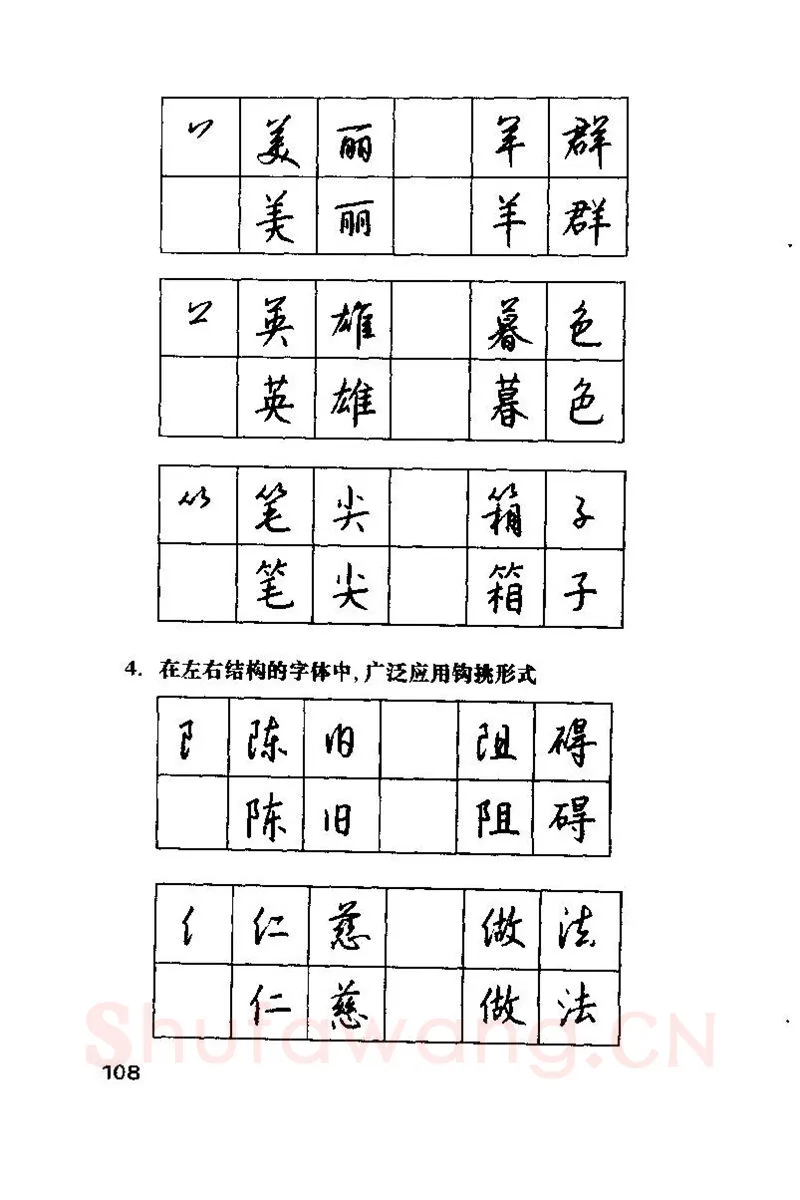 丷 美 丽 羊 群
美 丽 羊 群
䒑 英 雄 暮 色
英 雄 暮 色
⺮ 笔 尖 箱 子
笔 尖 箱 子
4. 在左右结构的字体中,广泛应用钩挑形式
阝 陈 旧 阻 碍
陈 旧 阻 碍
亻 仁 慈 做 法
仁 慈 做 法
Shufawang.CN
108